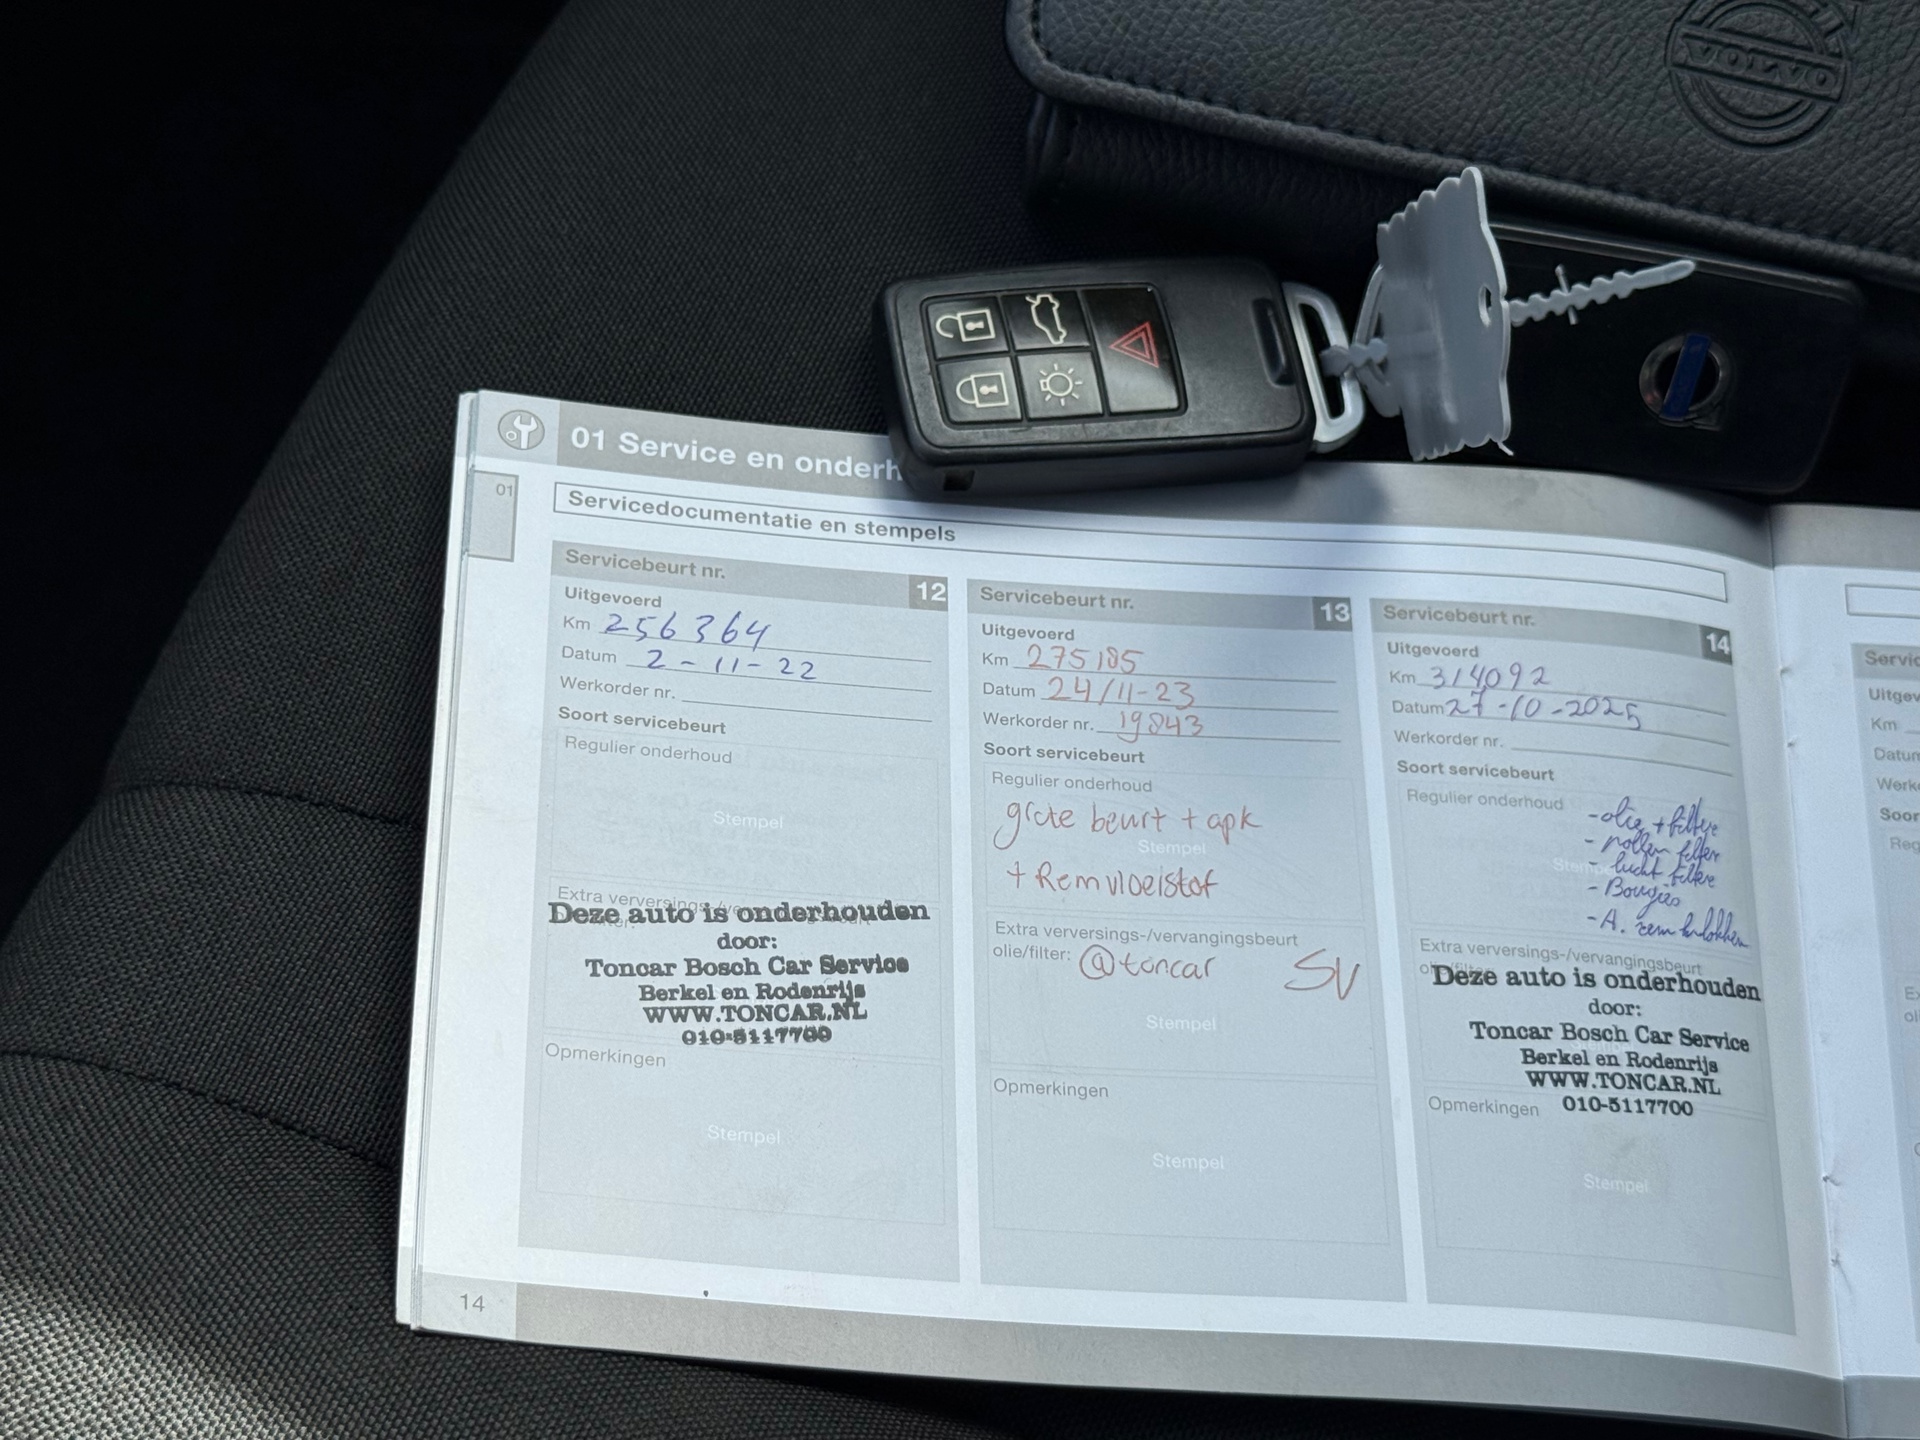 VOLVO
01 Service en onderh
01
Servicedocumentatie en stempels
Servicebeurt nr. 12
Uitgevoerd
Km 256364
Datum 2-11-22
Werkorder nr.
Soort servicebeurt
Regulier onderhoud
Stempel
Extra verversings-/
Deze auto is onderhouden
door:
Toncar Bosch Car Service
Berkel en Rodenrijs
WWW.TONCAR.NL
010-5117700
Opmerkingen
Stempel
Servicebeurt nr. 13
Uitgevoerd
Km 275185
Datum 24/11-23
Werkorder nr. 19843
Soort servicebeurt
Regulier onderhoud
grote beurt + apk
Stempel
+ Remvloeistof
Extra verversings-/vervangingsbeurt
olie/filter: @toncar SV
Stempel
Opmerkingen
Stempel
Servicebeurt nr. 14
Uitgevoerd
Km 314092
Datum 27-10-2025
Werkorder nr.
Soort servicebeurt
Regulier onderhoud
- olie + filter
- pollen filter
- lucht filter
- Bougies
- A. remblokken
Extra verversings-/vervangingsbeurt
Deze auto is onderhouden
door:
Toncar Bosch Car Service
Berkel en Rodenrijs
WWW.TONCAR.NL
010-5117700
Opmerkingen
Stempel
14
Servic
Uitgev
Km
Datum
Werko
Soort
Reg